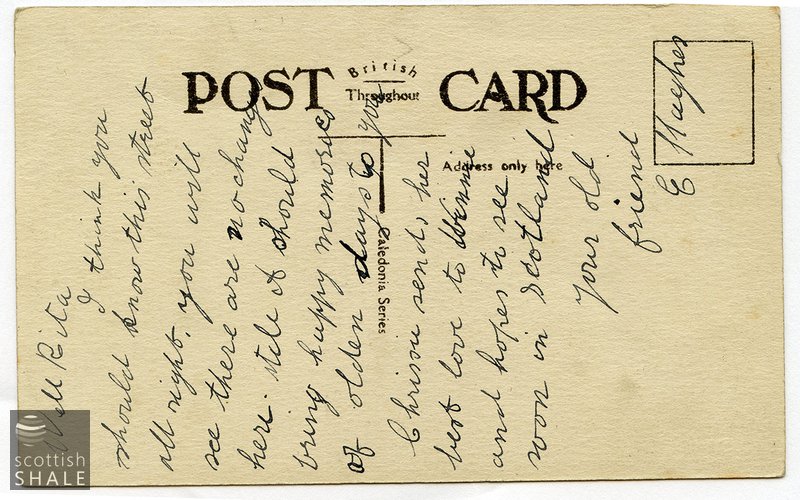 POST CARD
British
Throughout
Address only here
Caledonia Series
Well Rita
I think you
should know this street
all right, you will
see there are no change
here. still it should
bring happy memories
of olden days to you
Chrissie sends her
best love to Winnie
and hopes to see
soon in Scotland
your old
friend
C Hughes
scottish
SHALE